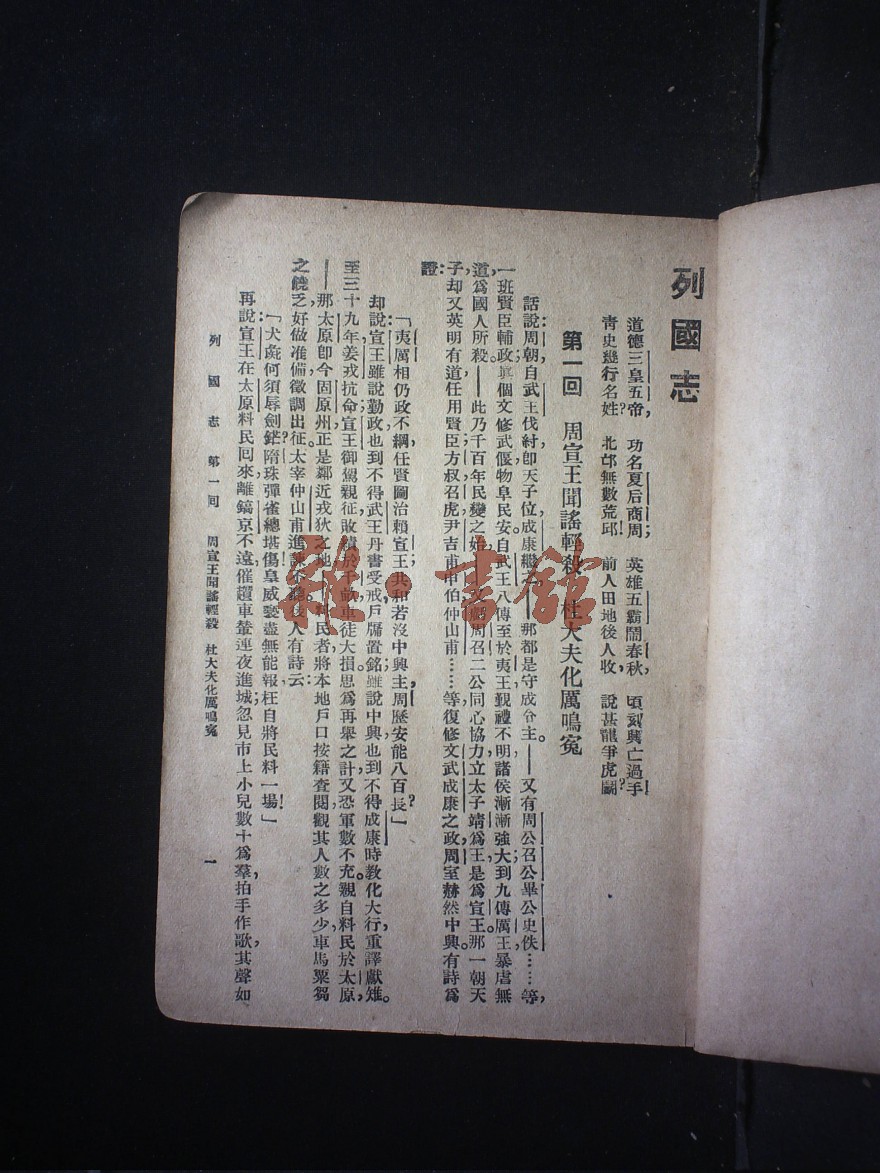 列國志
道德三皇五帝，功名夏后商周；英雄五霸鬧春秋，頃刻興亡過手！
青史幾行名姓？北邙無數荒邱！前人田地後人收，說甚龍爭虎鬭？
第一回　周宣王聞謠輕殺　杜大夫化厲鳴冤
話說：周朝自武王伐紂，卽天子位，成康繼之——那都是守成令主。——又有周公召公畢公史佚……等，
一班賢臣輔政；眞個文修武偃，物阜民安。自武王八傳至於夷王，覲禮不明，諸侯漸漸強大；到九傳厲王，暴虐無
道，爲國人所殺——此乃千百年民變之始。——又虧周召二公同心協力，立太子靖爲王，是爲宣王。那一朝天
子，却又英明有道，任用賢臣方叔召虎尹吉甫申伯仲山甫……等，復修文武成康之政，周室赫然中興。有詩爲
證：
「夷厲相仍政不綱，任賢圖治賴宣王；共和若沒中興主，周歷安能八百長？」
却說宣王雖說勤政，也到不得武王丹書受戒，戶牖置銘；雖說中興，也到不得成康時教化大行，重譯獻雉。
至三十九年，姜戎抗命，宣王御駕親征，敗績於千畝，車徒大損，思爲再舉之計，又恐軍數不充，親自料民於太原，
——那太原卽今固原州，正是鄰近戎狄之地。——料民者，將本地戶口，按籍查閱，觀其人數之多少，車馬粟芻
之饒乏，好做准備，徵調出征。太宰仲山甫進諫不聽。後人有詩云：
「犬彘何須辱劍鋩？隋珠彈雀總堪傷！皇威褻盡無能報，枉自將民料一場！」
再說宣王在太原料民回來，離鎬京不遠，催趲車輦，連夜進城；忽見市上小兒數十爲羣，拍手作歌，其聲如
列國志　第一回　周宣王聞謠輕殺　杜大夫化厲鳴冤　一
雅·書館